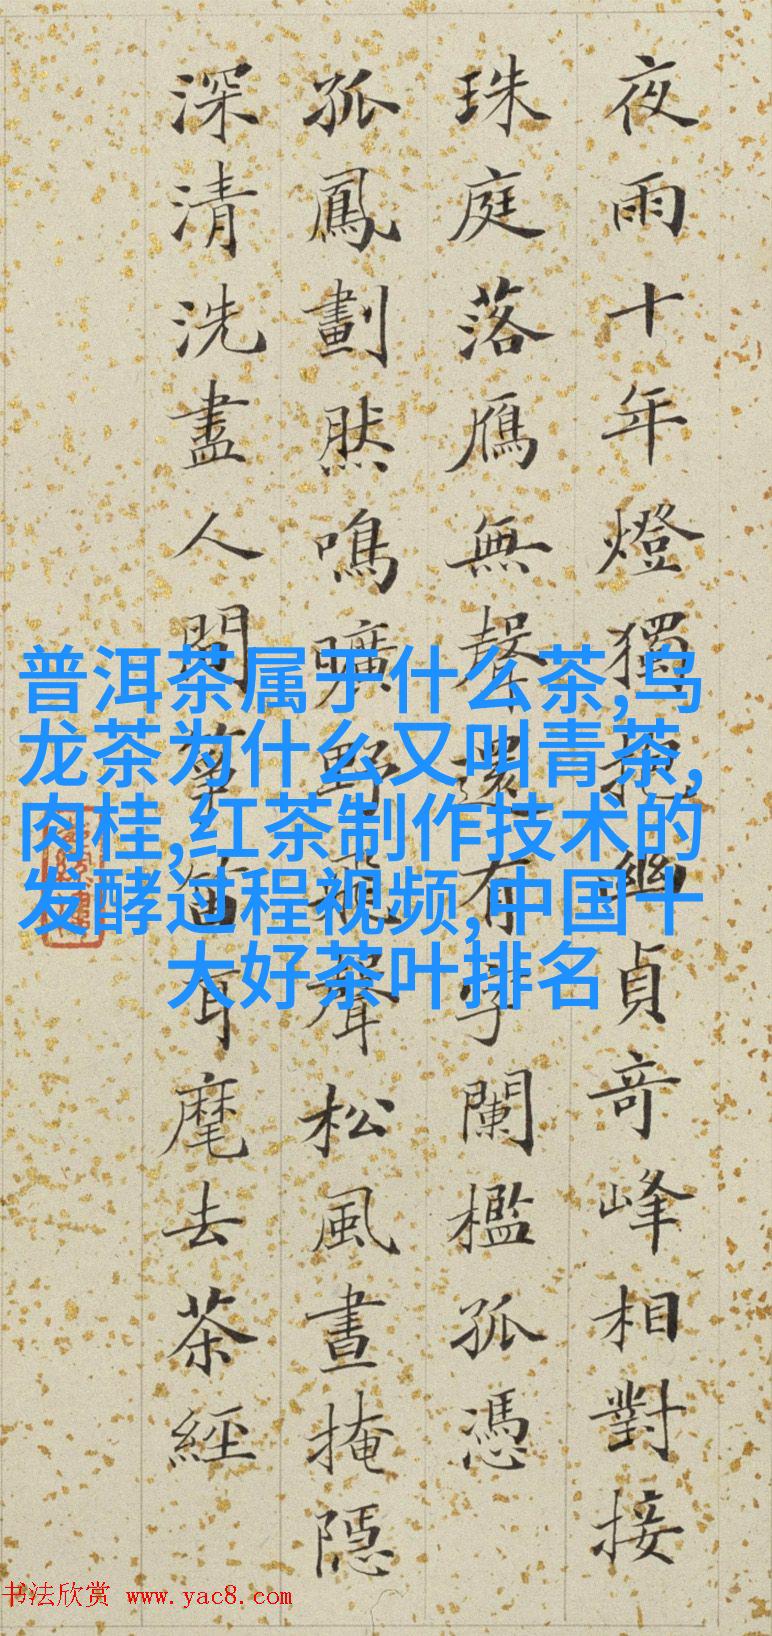 夜雨十年燈獨抱幽貞奇峰相對接
珠庭落鴈無聲還有字闌檻孤憑
孤鳳劃然鳴曠野飛聲松風晝掩隱
深清洗盡人間箏笛耳麾去茶經
普洱茶属于什么茶,乌
龙茶为什么又叫青茶,
肉桂,红茶制作技术的
发酵过程视频,中国十
大好茶叶排名
书法欣赏 www.yac8.com